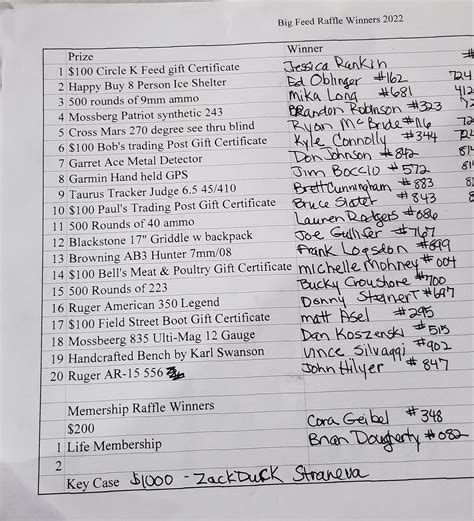 Big Feed Raffle Winners 2022
Prize Winner #
1 $100 Circle K Feed gift Certificate Jessica Rankin
2 Happy Buy 8 Person Ice Shelter Ed Oblinger #162 724
3 500 rounds of 9mm ammo Mika Long #681 412
4 Mossberg Patriot synthetic 243 Brandon Robinson #323
5 Cross Mars 270 degree see thru blind Ryan McBride #116
6 $100 Bob's trading Post Gift Certificate Kyle Connolly #344
7 Garret Ace Metal Detector Don Johnson #842
8 Garmin Hand held GPS Jim Boccio #572
9 Taurus Tracker Judge 6.5 45/410 Brett Cunningham #883
10 $100 Paul's Trading Post Gift Certificate Bruce Slater #843
11 500 Rounds of 40 ammo Lauren Rodgers #686
12 Blackstone 17" Griddle w backpack Joe #767
13 Browning AB3 Hunter 7mm/08 Frank Logsdon #899
14 $100 Bell's Meat & Poultry Gift Certificate michelle Mohney #004
15 500 Rounds of 223 Bucky Croushore #700
16 Ruger American 350 Legend Donny Steinert #697
17 $100 Field Street Boot Gift Certificate matt Asel #295
18 Mossbeerg 835 Ulti-Mag 12 Gauge Dan Koszenski #515
19 Handcrafted Bench by Karl Swanson Vince Silvaggi #902
20 Ruger AR-15 556 John Hilyer #847
Memership Raffle Winners
$200 Cora Geibel #348
1 Life Membership Brian Dougherty #082
2
Key Case $1000 - Zack Duck Straneva